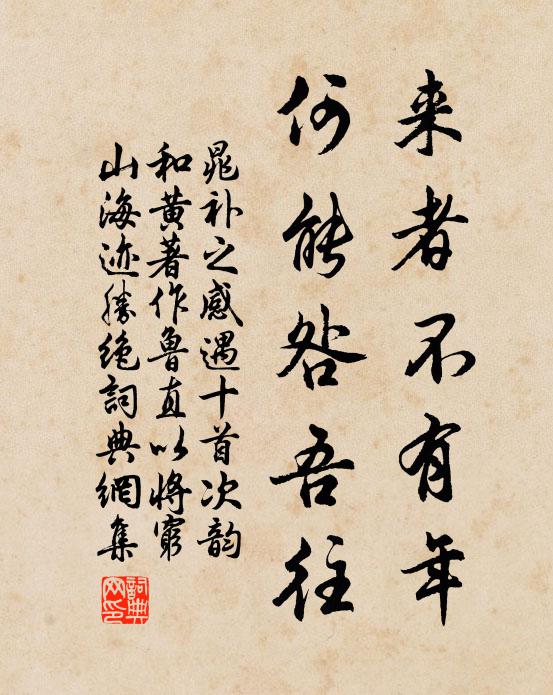 来者不有年
何能咎吾往
晁补之感遇十首次韵
和黄著作鲁直以将穷
山海迹胜绝詞典網集
詞典网印